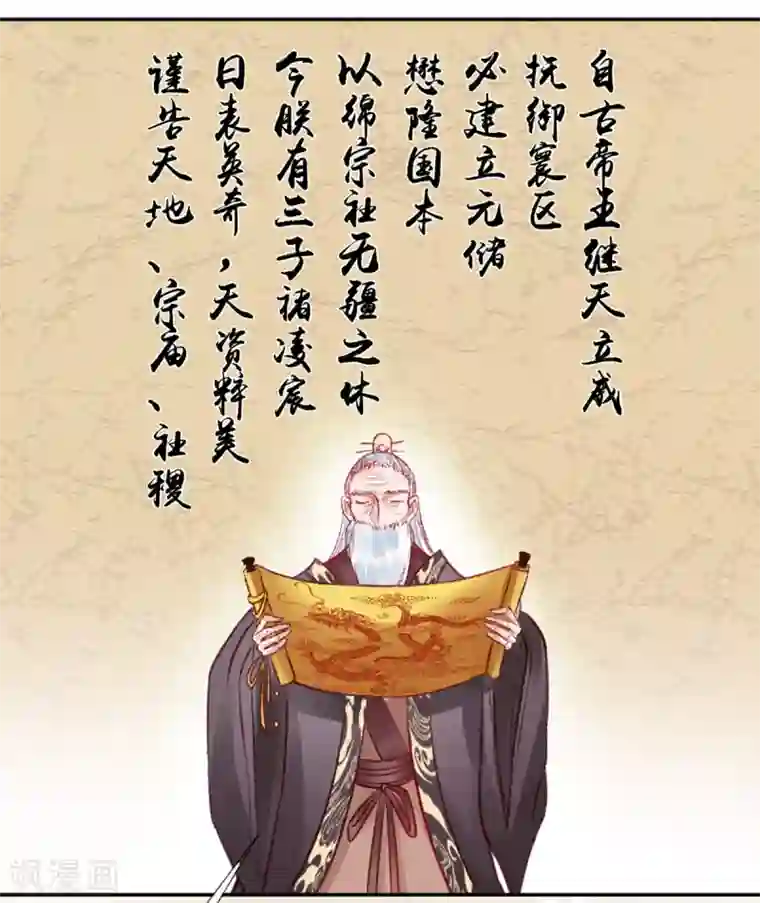 自古帝王继天立威
抚御寰区
必建立元储
懋隆国本
以绵宗社无疆之休
今朕有三子褚凌宸
日表英奇，天资粹美
谨告天地、宗庙、社稷
飒漫画